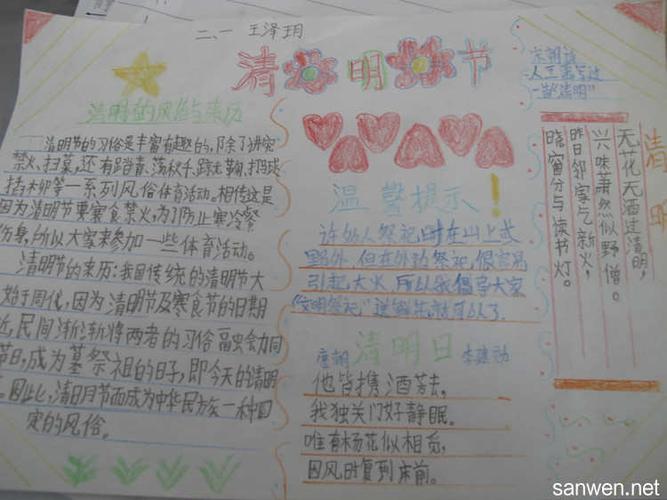 二、一 王泽玥
清明节
清明节的风俗与来历
清明节的习俗是丰富有趣的,除了讲究
禁火、扫墓,还有踏青、荡秋千、蹴鞠、打马球
插柳等一系列风俗体育活动。相传这是
因为清明节要寒食禁火,为了防止寒冷餐
伤身,所以大家来参加一些体育活动。
清明节的来历:我国传统的清明节大
始于周代,因为清明节及寒食节的日期
近,民间渐渐将两者的习俗融会
节日,成为墓祭祖的日子,即今天的清明
。因此,清明节而成为中华民族一种固
定的风俗。
温馨提示!
许多人祭祀时在山上或
野外,但在外边祭祀,很容易
引起大火,所以我倡导大家
“文明祭祀”
就可以了
唐朝 清明日 李建勋
他皆携酒芳去,
我独关门好静眠。
唯有杨花似相觅,
因风时复到床前。
宋朝诗
人王禹写过
一首“清明”
清明
无花无酒过清明,
兴味萧然似野僧。
昨日邻家乞新火,
晓窗分与读书灯。
sanwen.net